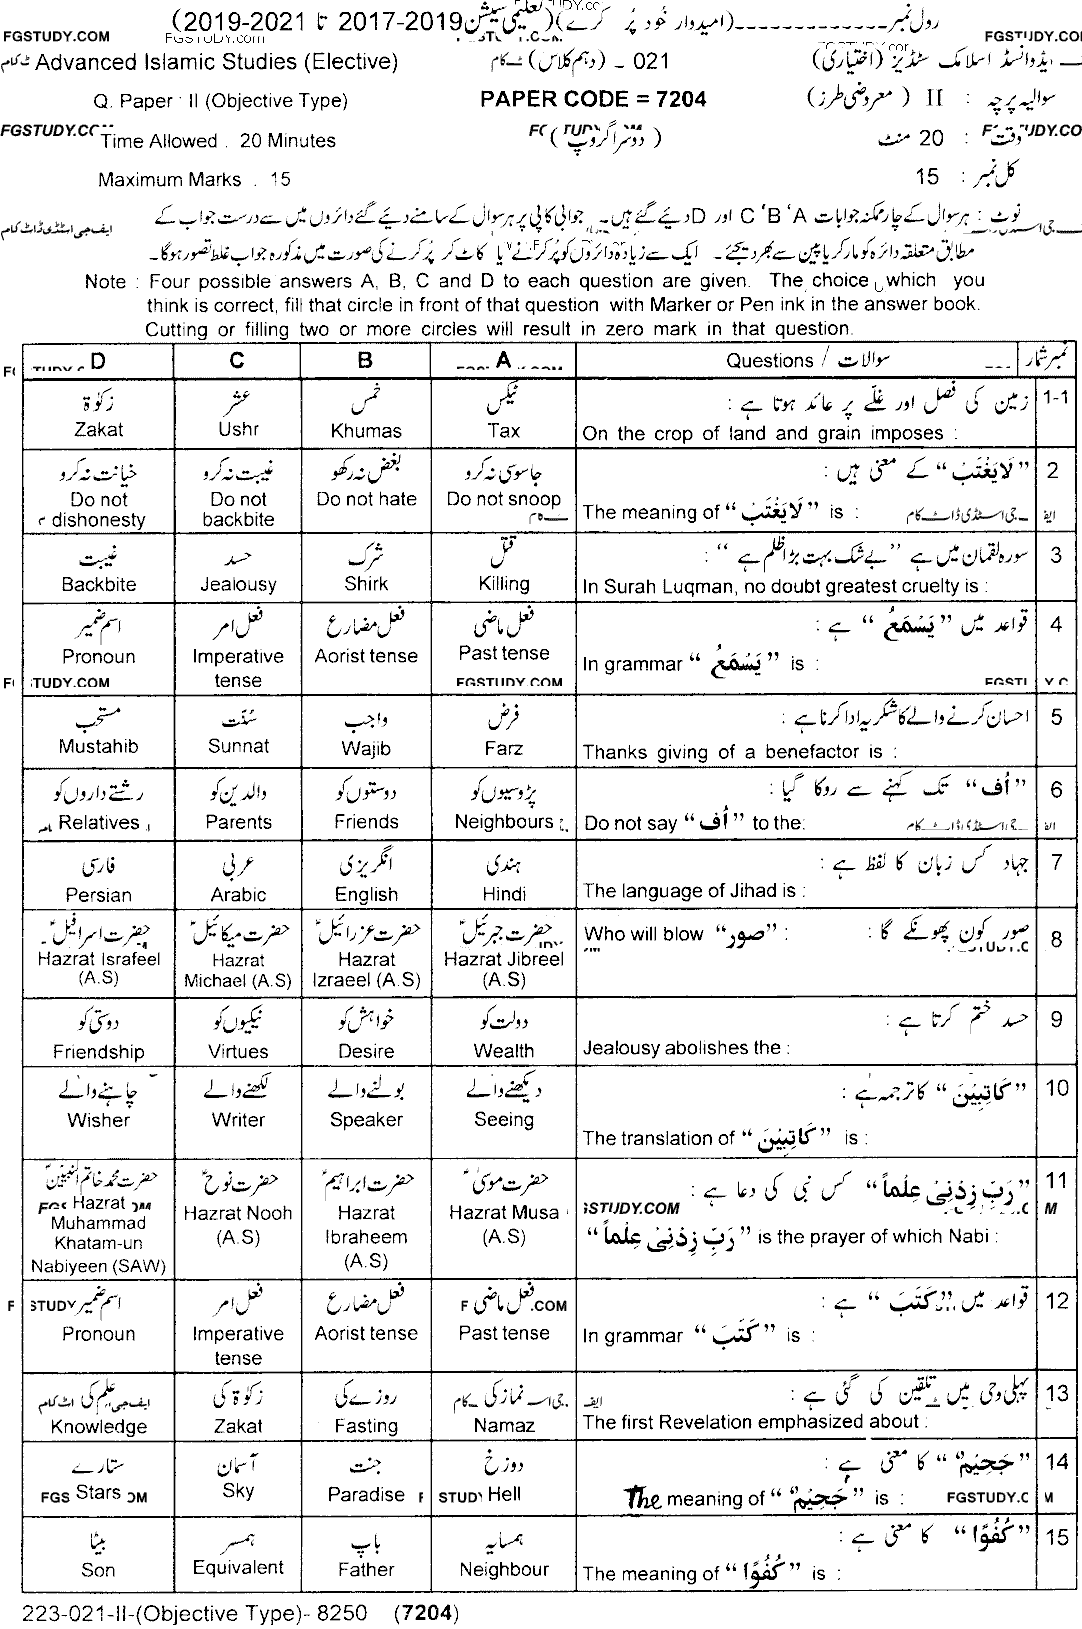 رول نمبر ـــــــــــــــــــــ(امیدوار خود پُر کرے)(تعلیمی سیشن 2017-2019 تا 2019-2021)
FGSTUDY.COM FGSTUDY.COM
Advanced Islamic Studies (Elective) 021 ـ (دہم کلاس) ایڈوانسڈ اسلامک سٹڈیز (اختیاری)
Q. Paper : II (Objective Type) PAPER CODE = 7204 سوالیہ پرچہ : II (معروضی طرز)
Time Allowed . 20 Minutes (دوسرا گروپ) وقت : 20 منٹ
Maximum Marks . 15 کل نمبر : 15
نوٹ : ہر سوال کے چار ممکنہ جوابات A ' B ' C اور D دیئے گئے ہیں۔ جوابی کاپی پر ہر سوال کے سامنے دیئے گئے دائروں میں سے درست جواب کے
مطابق متعلقہ دائرہ کو مارکر یا پین سے بھر دیجئے۔ ایک سے زیادہ دائروں کو پُر کرنے یا کاٹ کر پُر کرنے کی صورت میں مذکورہ جواب غلط تصور ہوگا۔
Note : Four possible answers A, B, C and D to each question are given. The choice which you
think is correct, fill that circle in front of that question with Marker or Pen ink in the answer book.
Cutting or filling two or more circles will result in zero mark in that question.
D C B A Questions / سوالات نمبر شمار
زکوٰۃ عشر خمس ٹیکس زمین کی فصل اور غلّے پر عائد ہوتا ہے : 1-1
Zakat Ushr Khumas Tax On the crop of land and grain imposes :
خیانت نہ کرو غیبت نہ کرو بغض نہ رکھو جاسوسی نہ کرو ” لَا یَغْتَبْ “ کے معنی ہیں : 2
Do not dishonesty Do not backbite Do not hate Do not snoop The meaning of “ لَا یَغْتَبْ ” is :
غیبت حسد شرک قتل سورہ لقمان میں ہے ” بے شک بہت بڑا ظلم ہے “ : 3
Backbite Jealousy Shirk Killing In Surah Luqman, no doubt greatest cruelty is :
اسم ضمیر فعل امر فعل مضارع فعل ماضی قواعد میں ” یَسْمَعُ “ ہے : 4
Pronoun Imperative tense Aorist tense Past tense In grammar “ یَسْمَعُ ” is :
مستحب سُنّت واجب فرض احسان کرنے والے کا شکریہ ادا کرنا ہے : 5
Mustahib Sunnat Wajib Farz Thanks giving of a benefactor is :
رشتے داروں کو والدین کو دوستوں کو پڑوسیوں کو ” اُف “ تک کہنے سے روکا گیا : 6
Relatives Parents Friends Neighbours Do not say “ اُف ” to the:
فارسی عربی انگریزی ہندی جہاد کس زبان کا لفظ ہے : 7
Persian Arabic English Hindi The language of Jihad is :
حضرت اسرافیلؑ حضرت میکائیلؑ حضرت عزرائیلؑ حضرت جبرئیلؑ Who will blow “صور” : صور کون پھونکے گا : 8
Hazrat Israfeel (A.S) Hazrat Michael (A.S) Hazrat Izraeel (A.S) Hazrat Jibreel (A.S)
دوستی کو نیکیوں کو خواہش کو دولت کو حسد ختم کرتا ہے : 9
Friendship Virtues Desire Wealth Jealousy abolishes the :
چاہنے والے لکھنے والے بولنے والے دیکھنے والے ” کَاتِبِیْنَ “ کا ترجمہ ہے : 10
Wisher Writer Speaker Seeing The translation of “ کَاتِبِیْنَ ” is :
حضرت محمد خاتم النبیینؐ حضرت نوحؑ حضرت ابراہیمؑ حضرت موسیٰؑ ” رَبِّ زِدْنِیْ عِلْماً “ کس نبی کی دعا ہے : 11
Hazrat Muhammad Khatam-un Nabiyeen (SAW) Hazrat Nooh (A.S) Hazrat Ibraheem (A.S) Hazrat Musa (A.S) “ رَبِّ زِدْنِیْ عِلْماً ” is the prayer of which Nabi :
اسم ضمیر فعل امر فعل مضارع فعل ماضی قواعد میں ” کَتَبَ “ ہے : 12
Pronoun Imperative tense Aorist tense Past tense In grammar “ کَتَبَ ” is :
علم کی زکوٰۃ کی روزے کی نماز کی پہلی وحی میں تلقین کی گئی ہے : 13
Knowledge Zakat Fasting Namaz The first Revelation emphasized about :
ستارے آسمان جنت دوزخ ” جَحِیْمٌ “ کا معنی ہے : 14
Stars Sky Paradise Hell The meaning of “ جَحِیْمٌ ” is : FGSTUDY.COM
بیٹا ہمسر باپ ہمسایہ ” کُفُوًا “ کا معنی ہے : 15
Son Equivalent Father Neighbour The meaning of “ کُفُوًا ” is :
223-021-II-(Objective Type)- 8250 (7204)